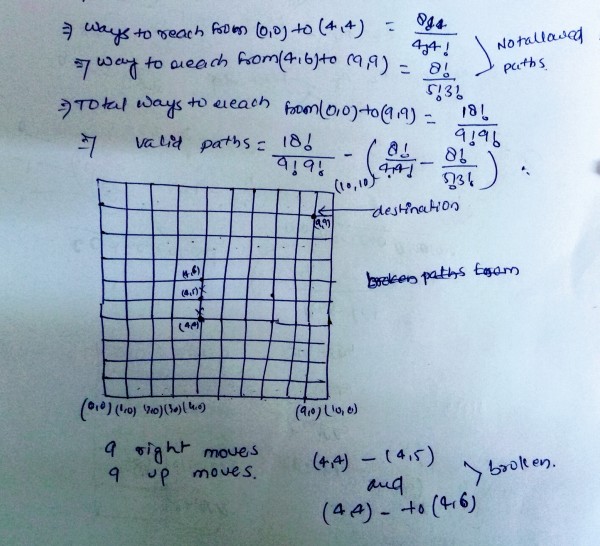 ⇒ ways to reach from (0,0) to (4,4) = 8!/4!4!
⇒ way to reach from (4,6) to (9,9) = 8!/5!3!
Not allowed paths.
⇒ Total ways to reach from (0,0) to (9,9) = 18!/9!9!
⇒ valid paths = 18!/9!9! - (8!/4!4! - 8!/5!3!) .
(10,10)
destination
(9,9)
(4,6)
(4,5)
broken paths from
(4,4)
(0,0) (1,0) (2,0) (3,0) (4,0) (9,0) (10,0)
9 right moves
9 up moves.
(4,4) - (4,5)
and
(4,4) - to (4,6)
broken.